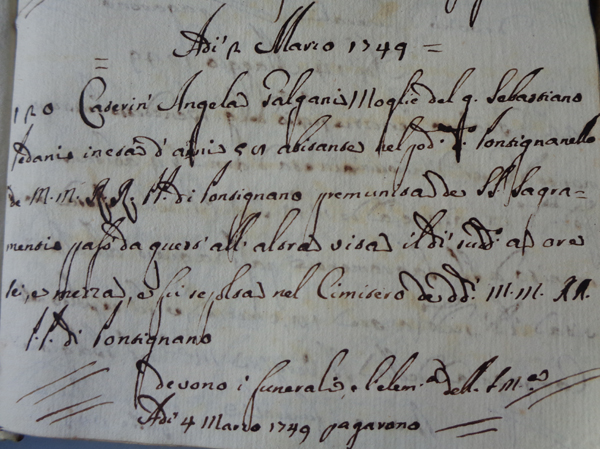 Adi 2 Marzo 1749 =
120 Caterin' Angela Galgani Moglie del q. Sebastiano
Pedani in età d' anni 52 abitante nel pod.e Consignanello
de M. M. R. R. P.P. di Consignano premunita de SS. Sagra=
menti passò da quest' all' altra vita il dì sudd.o a ore
sei, e mezza, e fu sepolta nel Cimitero de dd.i M. M. RR.
P.P. di Consignano
Devono i funerali, e l'elem.a dell.
Adi 4 Marzo 1749 pagarono